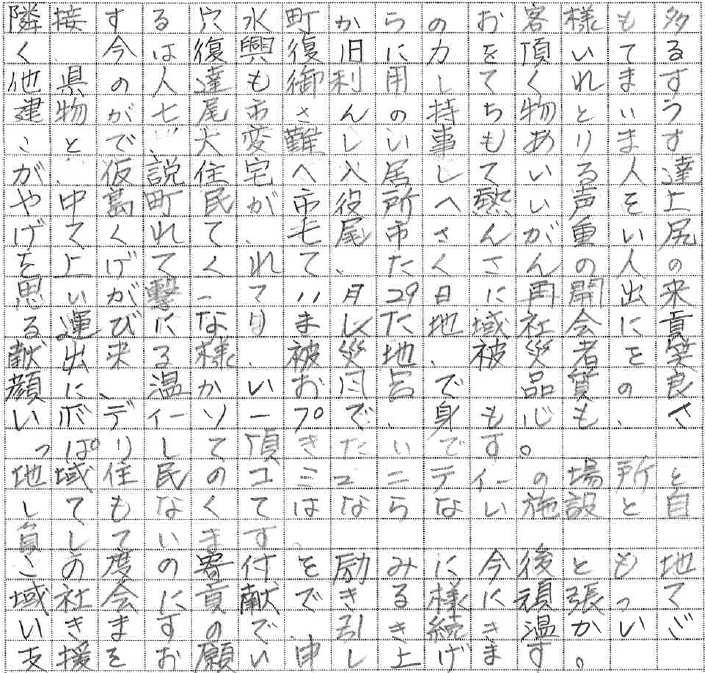 隣接する穴水町からのお客様も多
く、今は復興復旧に力を頂いてる
他県の人達も御利用してくれます
建物が七尾市さんの持ち物という
ことで、大変難しい事もあります
が、仮説住宅へ入居している人達
や中島町民が市役所へ熱い声を上
げてくれて、七尾市さんが重い尻
を上げてくれて、たくさんの人の
思いが繋って11月29日に再開出来
る運びになりました地域社会に貢
献出来る様、被災地、被災者を笑
顔に、温かいお風呂で品質の良
いボディーソープで、身も心も、さ
っぱりして頂きたいです。
地域住民のコミュニティーの場所と
してもなくてはならない施設と自
負しています。
この度の寄付を励みに今後とも地
域社会に貢献できる様に頑張って
いきますので、引き続き温かいご
支援をお願い申し上げます。